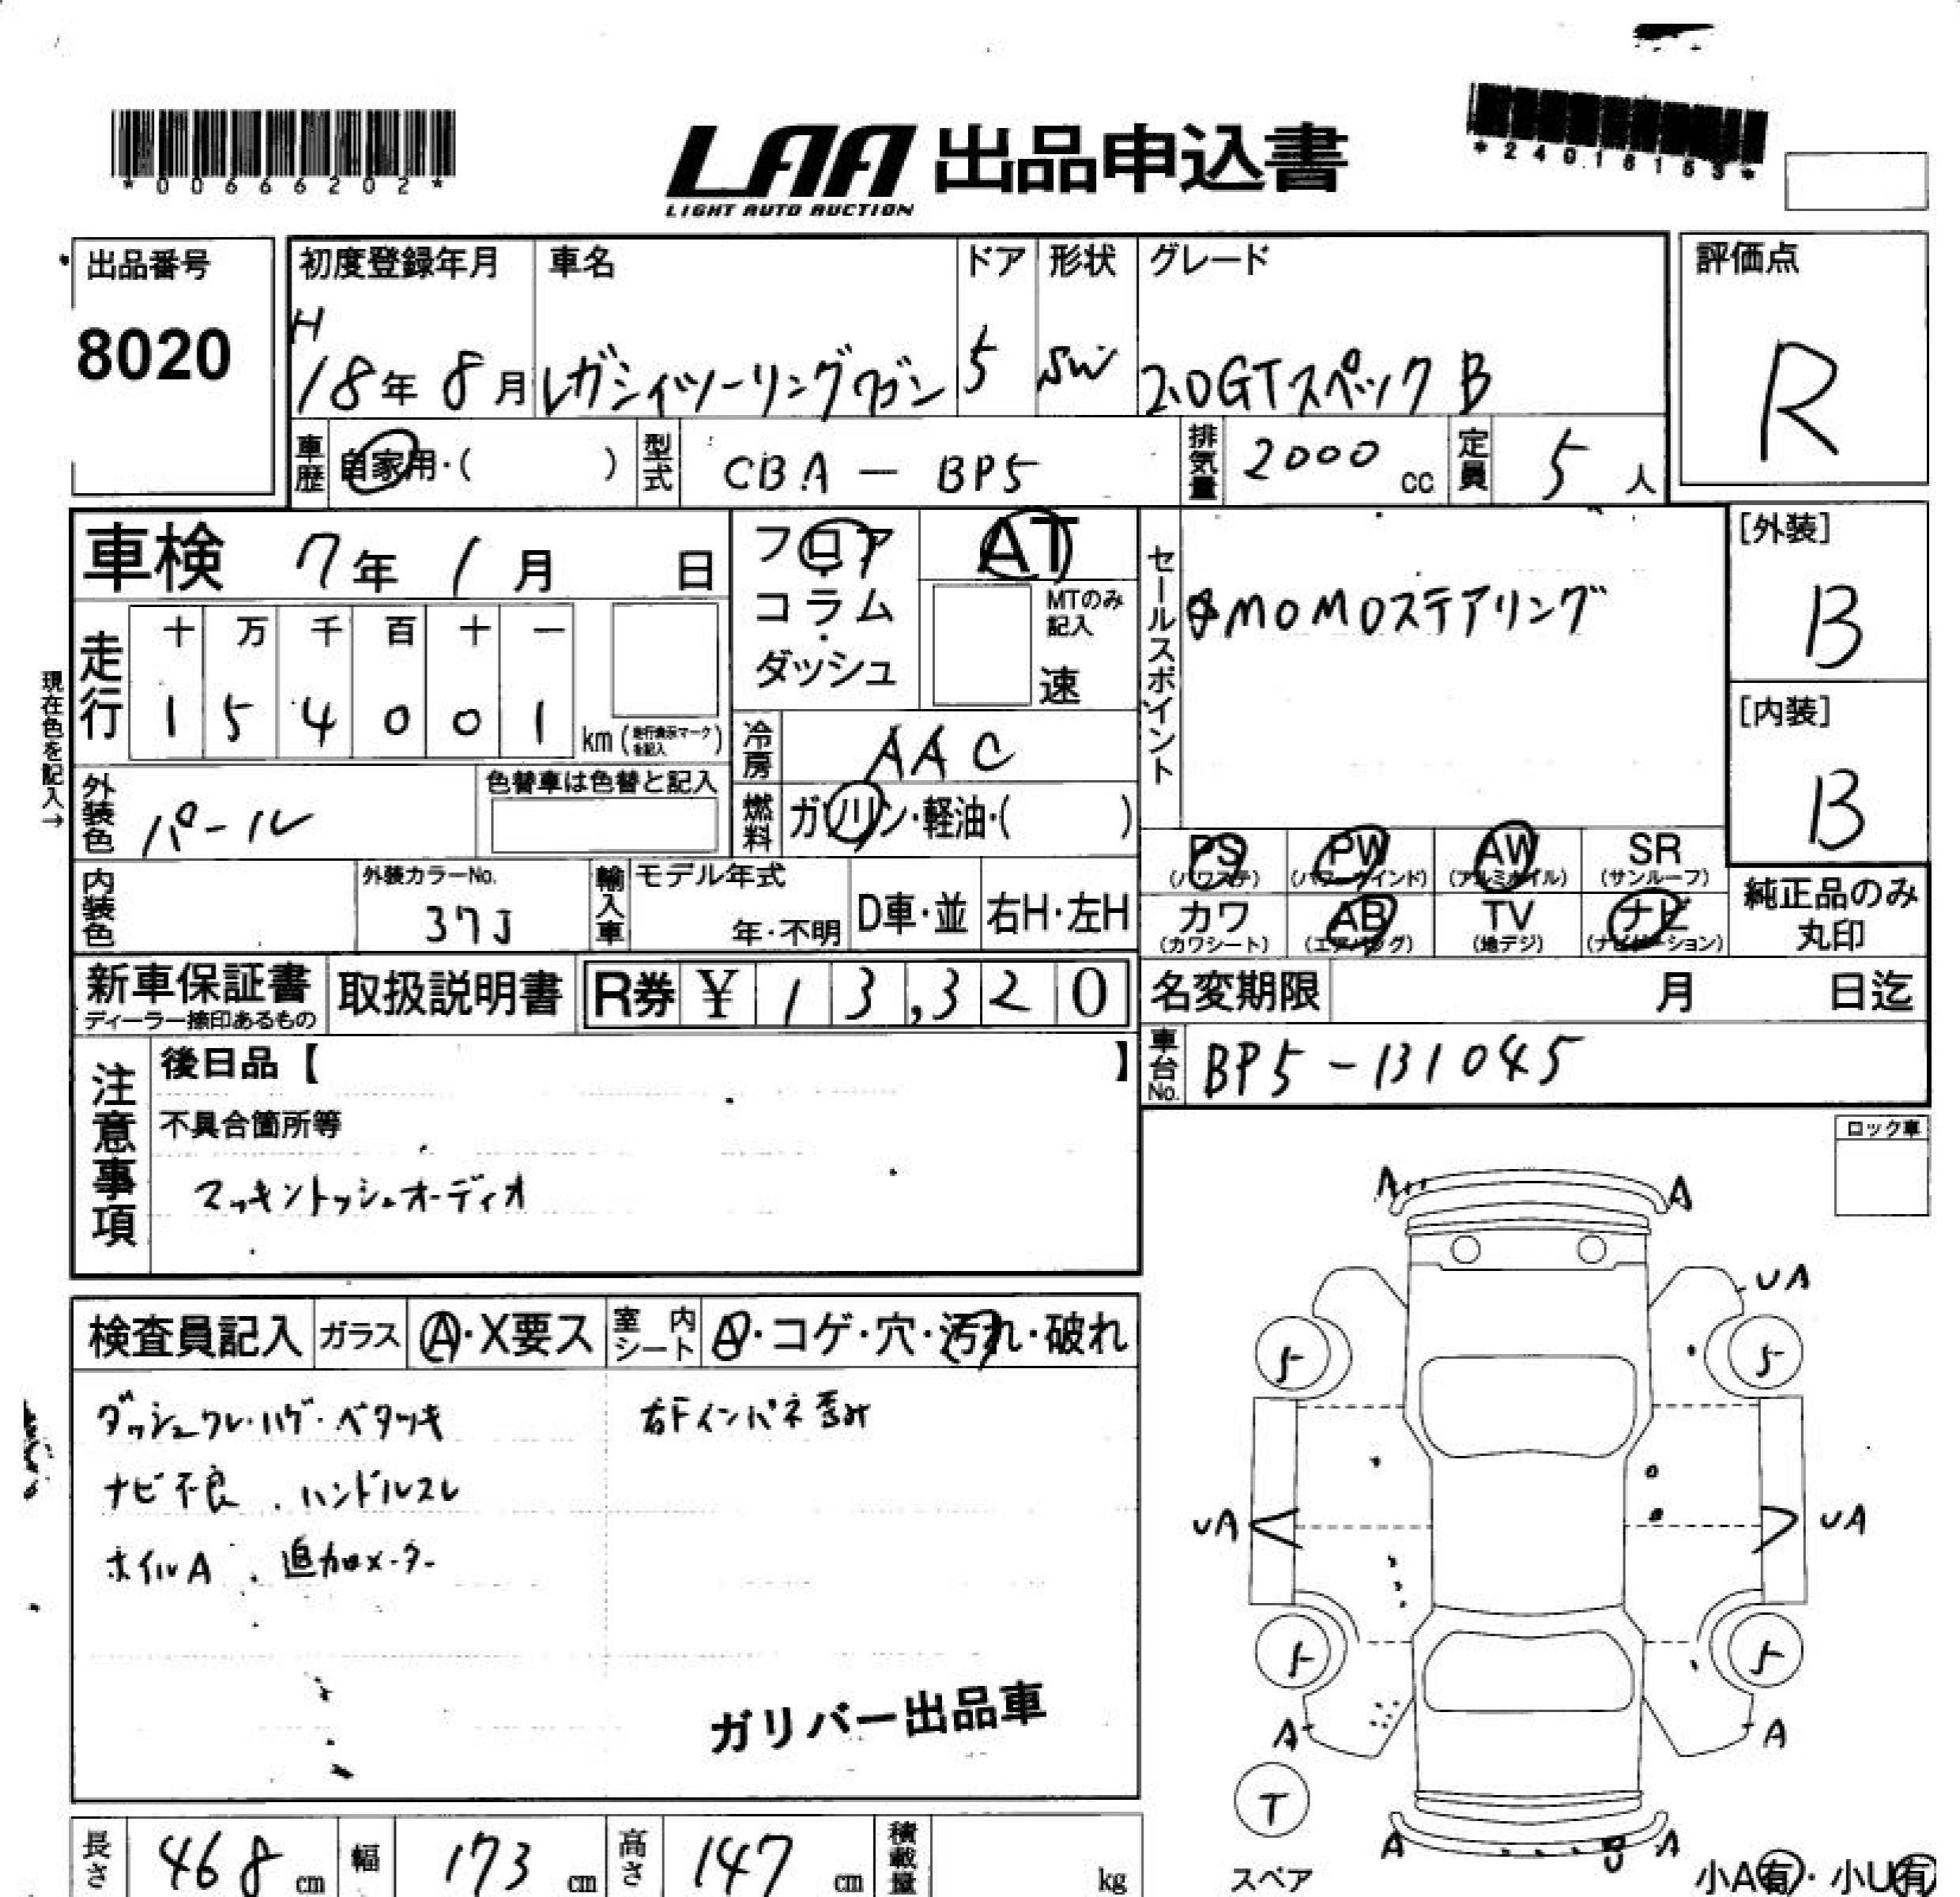 *00666202*
LAA 出品申込書
LIGHT AUTO AUCTION
*24016153*
出品番号
8020
初度登録年月
H
18年 8月
車名
レガシィツーリングワゴン
ドア
5
形状
SW
グレード
2.0GTスペックB
評価点
R
車歴
自家用・( )
型式
CBA - BP5
排気量
2000 cc
定員
5 人
車検 7年 1月 日
フロア
コラム
・
ダッシュ
AT
MTのみ
記入
速
セールスポイント
MOMOステアリング
[外装]
B
[内装]
B
現在色を記入→
走行
十 万 千 百 十 一
1 5 4 0 0 1
km (走行表示マークを記入)
冷房
AAC
外装色
パール
色替車は色替と記入
燃料
ガソリン・軽油・( )
PS
(パワステ)
PW
(パワーウインド)
AW
(アルミホイル)
SR
(サンルーフ)
カワ
(カワシート)
AB
(エアバッグ)
TV
(地デジ)
ナビ
(ナビゲーション)
純正品のみ
丸印
内装色
外装カラーNo.
37J
輸入車
モデル年式
年・不明
D車・並
右H・左H
新車保証書
ディーラー捺印あるもの
取扱説明書
R券 ¥ 13,320
名変期限 月 日迄
車台No.
BP5-131045
注意事項
後日品【 】
不具合箇所等
マッキントッシュオーディオ
ロック車
検査員記入
ガラス
A・X要ス
室内
シート
A・コゲ・穴・汚れ・破れ
ダッシュワレ・ハゲ・ベタツキ
ナビ不良 . ハンドルスレ
ホイルA . 追加メーター
右Fインパネ歪み
ガリバー出品車
A A
UA
5 5
UA UA
5 5
A A
T
スペア
A B A
小A有・小U有
長さ 468 cm
幅 173 cm
高さ 147 cm
積載量 kg